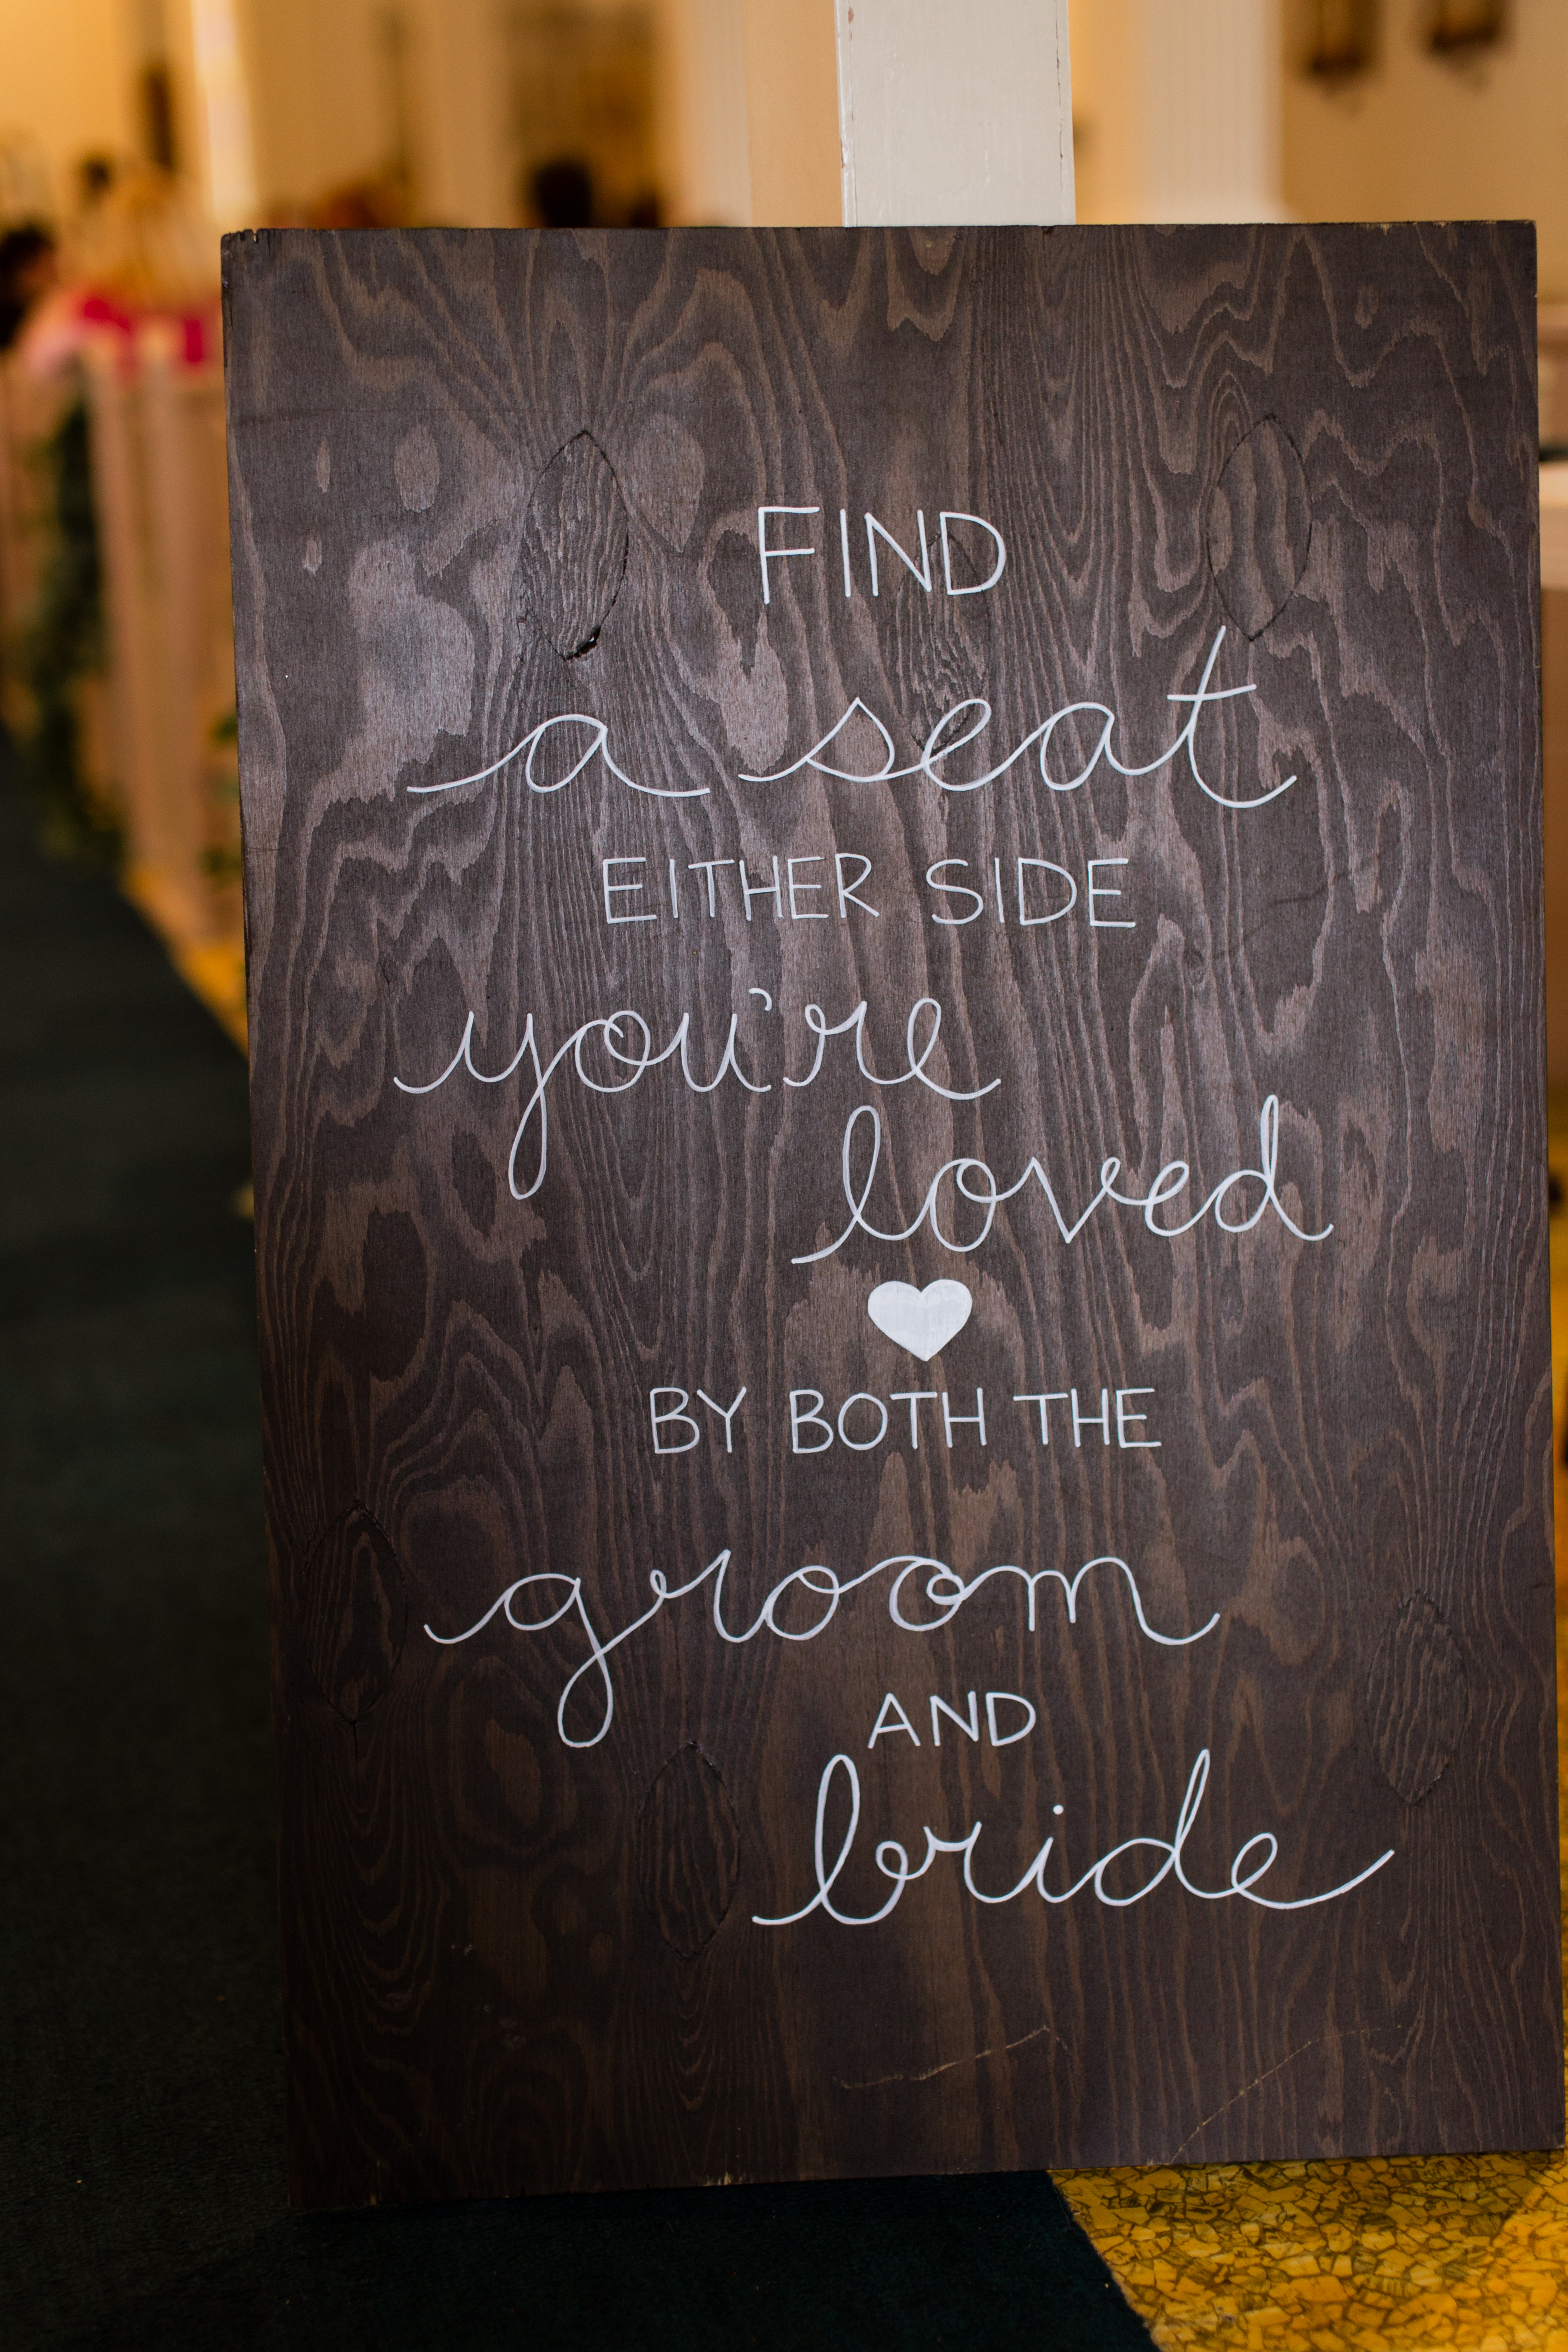 FIND
a seat
EITHER SIDE
you're
loved
BY BOTH THE
groom
AND
bride